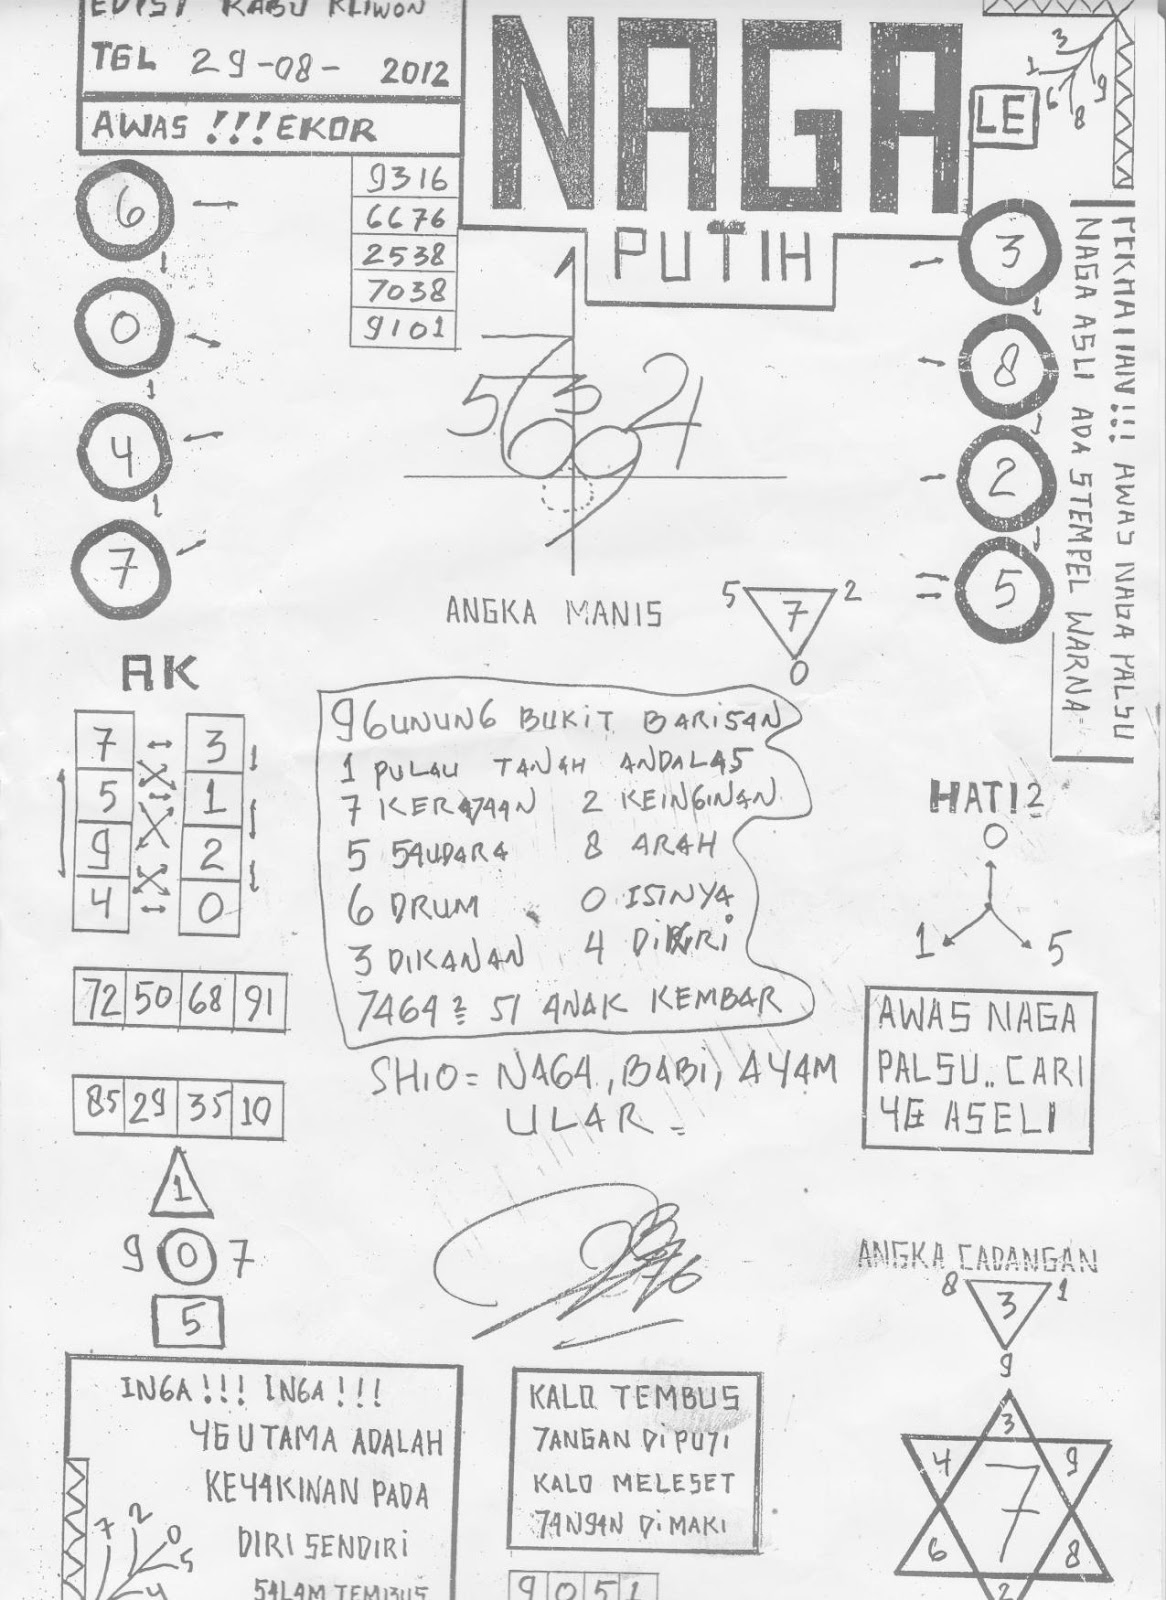 EDISI RABU KLIWON
TGL 29-08- 2012
AWAS !!!EKOR
NAGA
PUTIH
LE
3
1
6
8
9
6
0
4
7
9316
6676
2538
7038
9101
3
8
2
5
AWAS NAGA PALSU
NAGA ASLI ADA STEMPEL WARNA=
ANGKA MANIS
5 7 2
0
AK
7 3
5 1
9 2
4 0
72 50 68 91
85 29 35 10
1
9 0 7
5
9 GUNUNG BUKIT BARISAN
1 PULAU TANAH ANDALAS
7 KERAJAAN 2 KEINGINAN
5 SAUDARA 8 ARAH
6 DRUM 0 ISINYA
3 DIKANAN 4 DIKIRI
7464 2= 51 ANAK KEMBAR
SHIO= NAGA, BABI, AYAM
ULAR =
HATI2
0
1 5
AWAS NAGA
PALSU.. CARI
YG ASELI
ANGKA CADANGAN
8 3 1
9
3
4 9
7
6 8
2
INGA!!! INGA!!!
YG UTAMA ADALAH
KEYAKINAN PADA
DIRI SENDIRI
SALAM TEMBUS
7 2 0
5
4
KALO TEMBUS
JANGAN DI PUJI
KALO MELESET
JANGAN DIMAKI
9 0 5 1